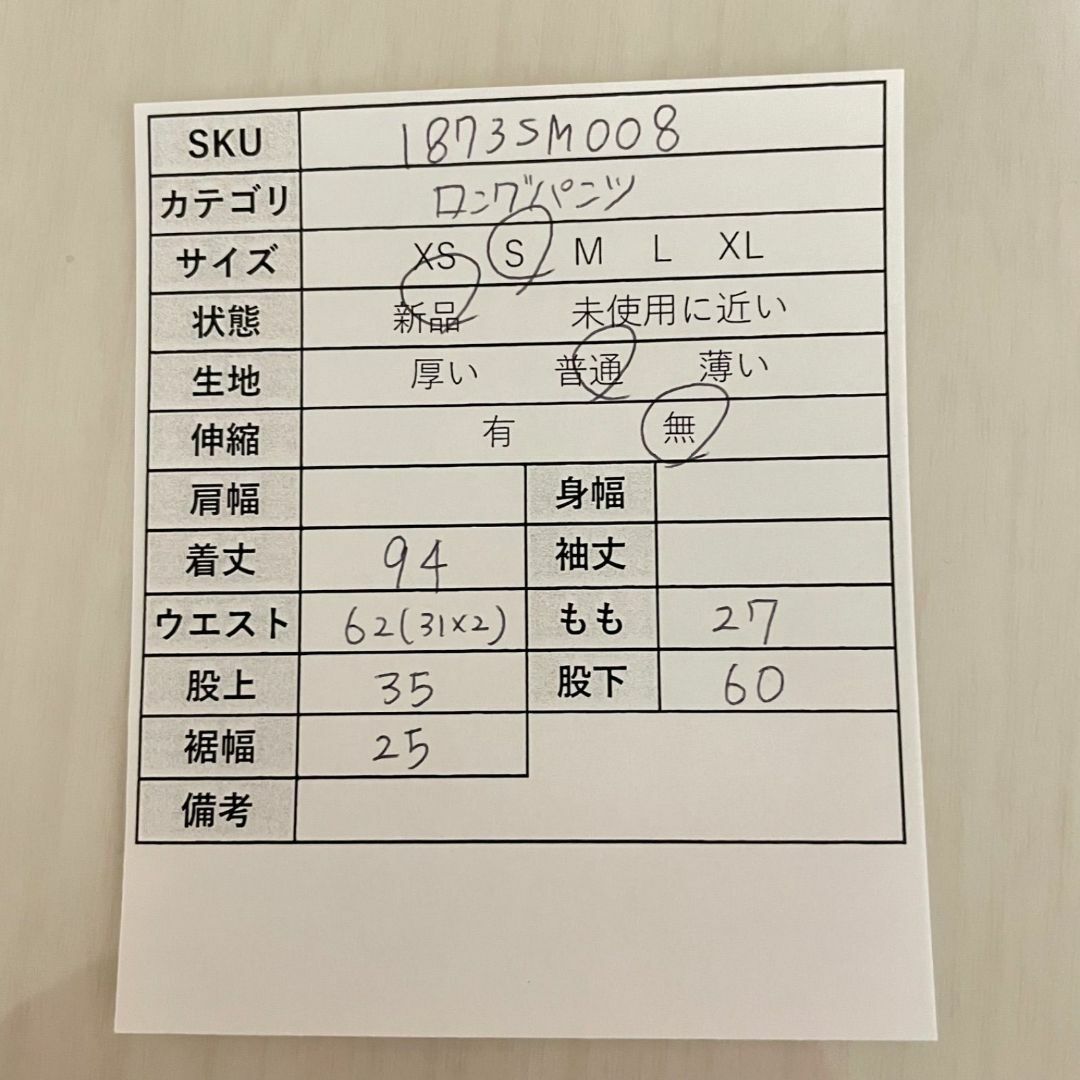 SKU 18735M008
カテゴリ ロングパンツ
サイズ XS S M L XL
状態 新品 未使用に近い
生地 厚い 普通 薄い
伸縮 有 無
肩幅 身幅
着丈 94 袖丈
ウエスト 62(31×2) もも 27
股上 35 股下 60
裾幅 25
備考